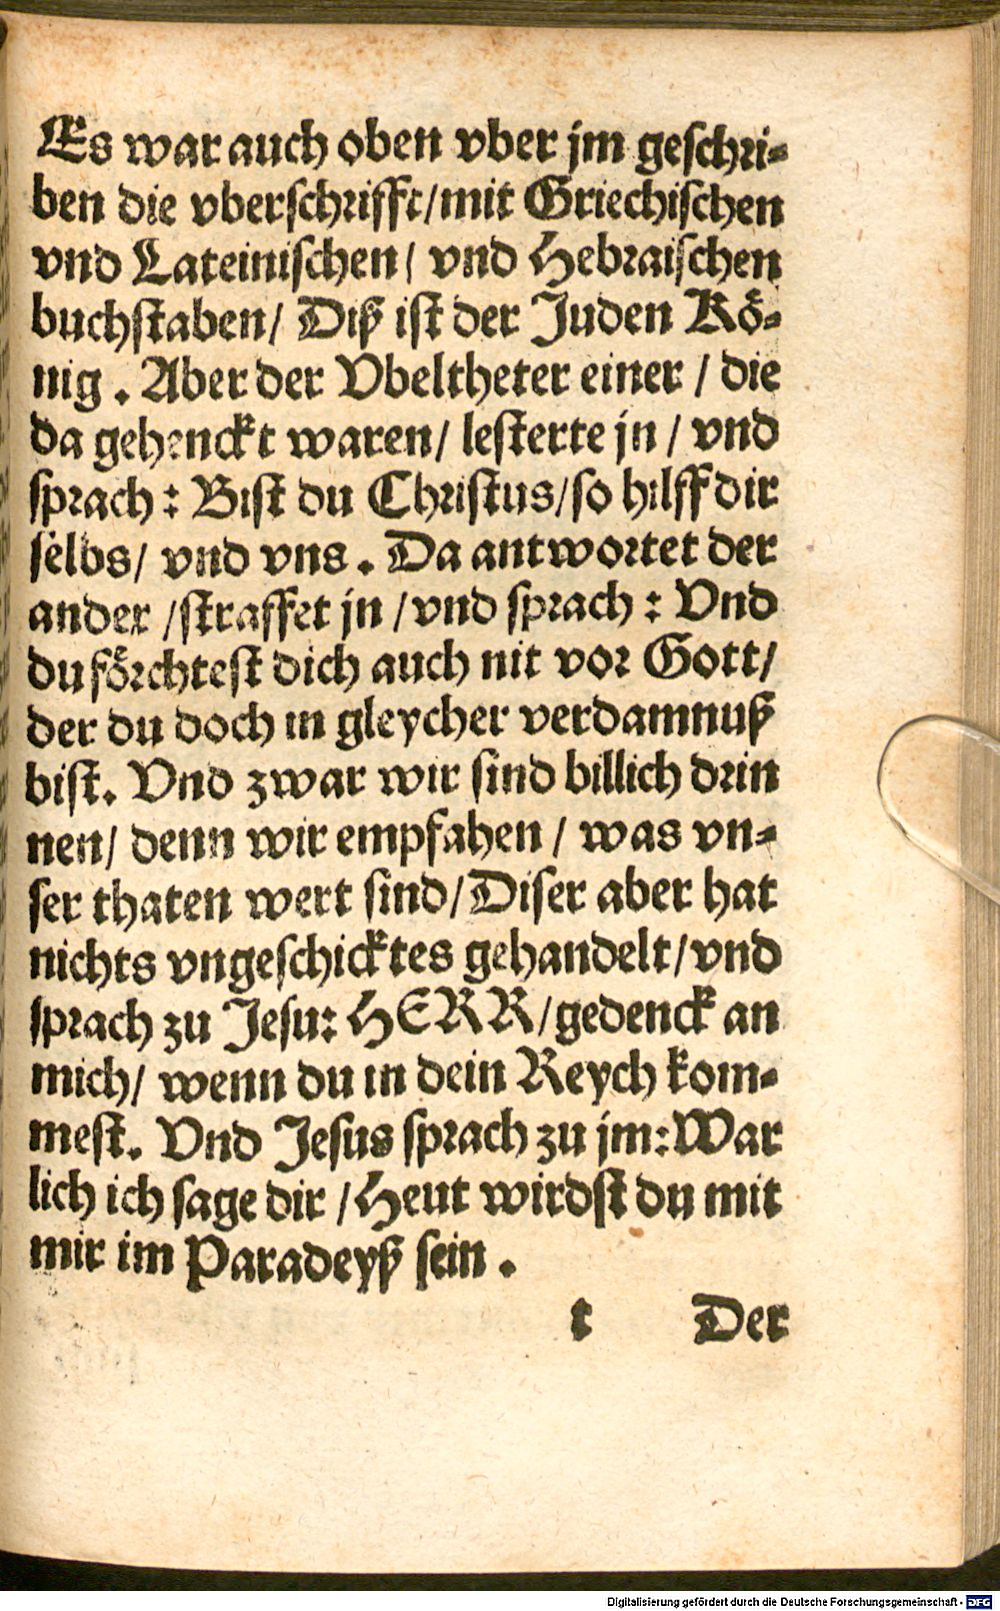 Es war auch oben vber jm geschri-
ben die vberschrifft/mit Griechischen
vnd Lateinischen/ vnd Hebraischen
buchstaben/ Diß ist der Juden Kö-
nig. Aber der Vbeltheter einer / die
da gehenckt waren/ lesterte jn / vnd
sprach: Bist du Christus/so hilff dir
selbs/ vnd vns. Da antwortet der
ander /straffet jn /vnd sprach: Vnd
du förchtest dich auch nit vor Gott/
der du doch in gleycher verdamnuß
bist. Vnd zwar wir sind billich drin
nen/ denn wir empfahen / was vn-
ser thaten wert sind/Diser aber hat
nichts vngeschicktes gehandelt/vnd
sprach zu Jesu: HERR/gedenck an
mich/ wenn du in dein Reych kom-
mest. Vnd Jesus sprach zu jm:War
lich ich sage dir /Heut wirdst du mit
mir im Paradeyß sein.
t Der
Digitalisierung gefördert durch die Deutsche Forschungsgemeinschaft - DFG